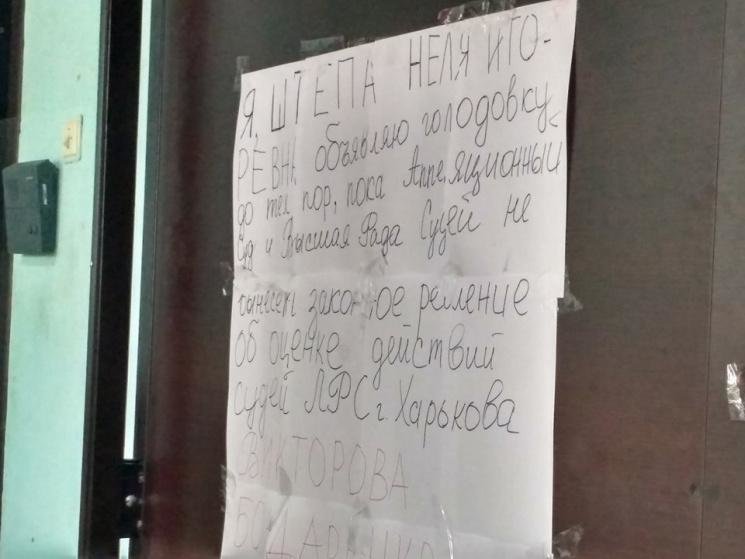 Я, ШТЕПА НЕЛЯ ИГО-
РЕВНА объявляю голодовку
до тех пор, пока Аппеляционный
Суд и Высшая Рада Судей не
вынесет законное решение
об оценке действий
судей ЛРС г. Харькова
ВИКТОРОВА